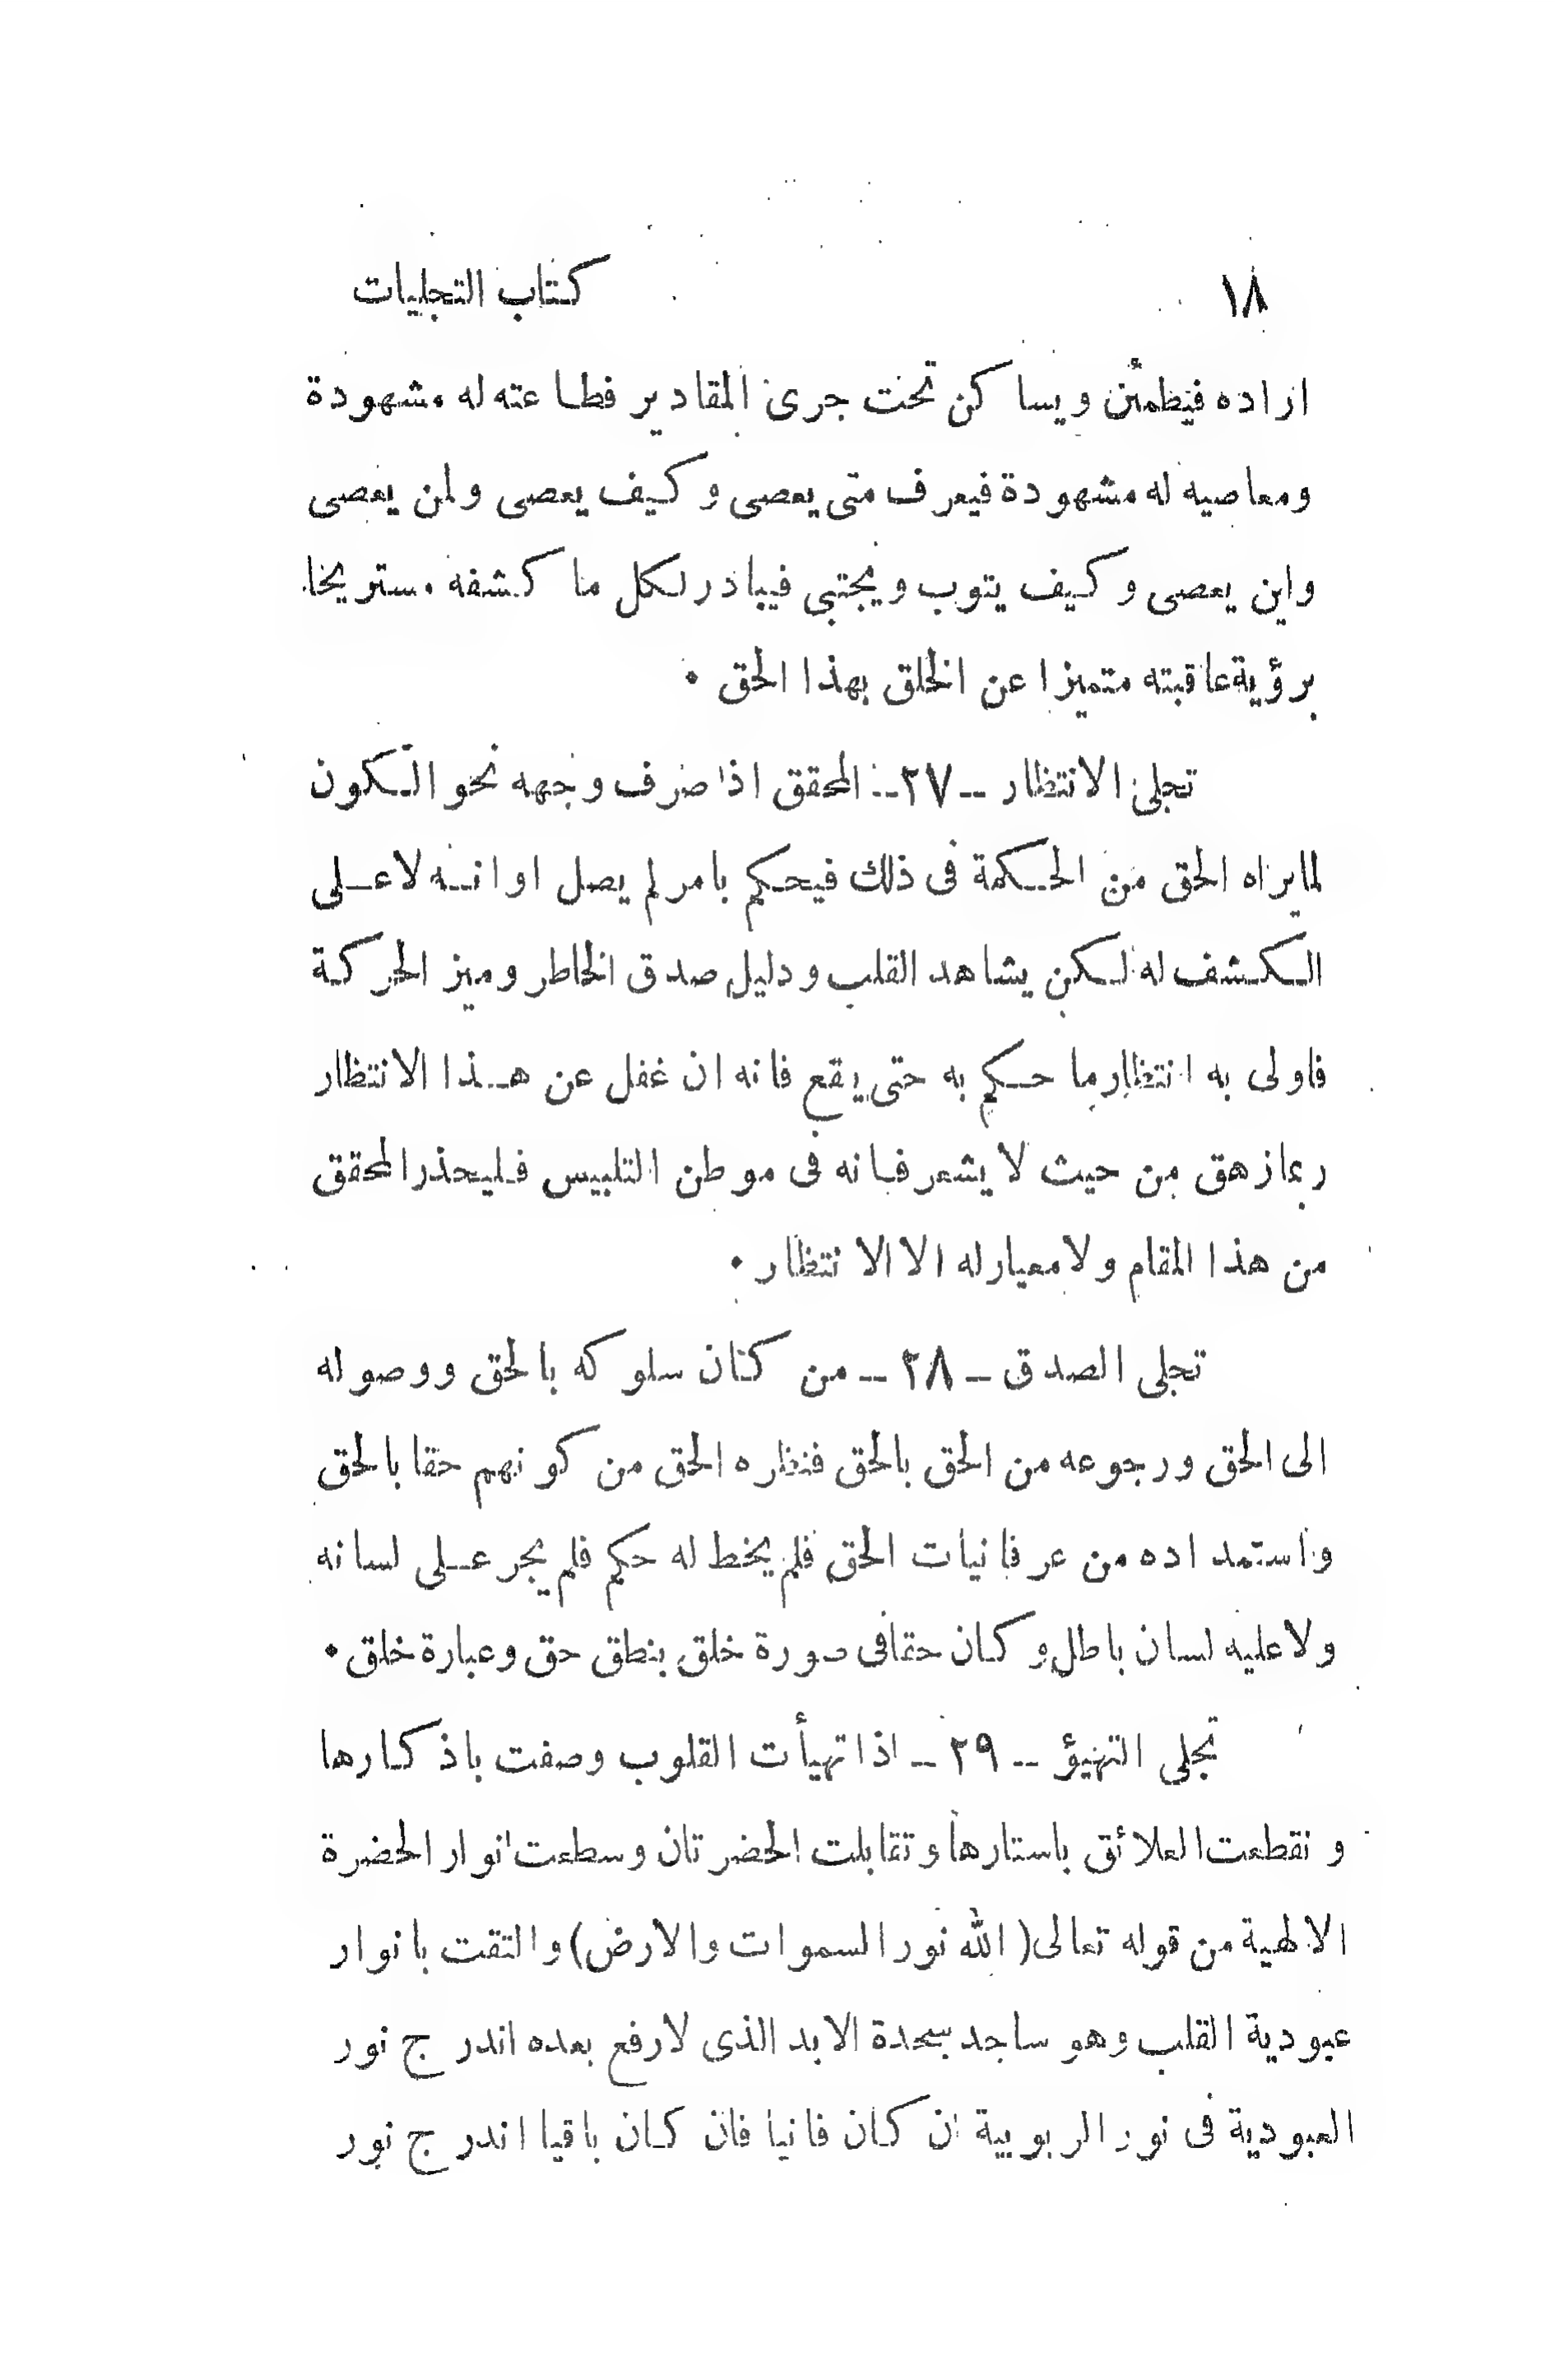 ١٨ كتاب التجليات
اراده فيطمئن ويسا كن تحت جرى المقادير فطاعته له مشهودة
ومعاصيه له مشهودة فيعرف متى يعصى وكيف يعصى ولمن يعصى
واين يعصى وكيف يتوب ويجتبى فيبادر لكل ما كشفه مستريحا
برؤية عاقبته متميزا عن الخلق بهذا الحق ٠
تجلى الانتظار -- ٢٧ -- المحقق اذا صرف وجهه نحو الكون
لما يراه الحق من الحكمة فى ذلك فيحكم بامر لم يصل اوانه لا على
الكشف له لكن يشاهد القلب ودليل صدق الخاطر وميز الحركة
فاولى به انتظار ما حكم به حتى يقع فانه ان غفل عن هذا الانتظار
ربما زهق من حيث لا يشعر فانه فى موطن التلبيس فليحذر المحقق
من هذا المقام ولا معيار له الا الانتظار ٠
تجلى الصدق - ٢٨ -- من كان سلوكه بالحق ووصوله
الى الحق ورجوعه من الحق بالحق فنظره الحق من كونهم حقا بالحق
واستمداده من عرفانيات الحق فلم يخط له حكم فلم يجر على لسانه
ولا عليه لسان باطل وكان حقا فى صورة خلق بنطق حق وعبارة خلق ٠
تجلى التهيؤ -- ٢٩ - اذا تهيأت القلوب وصفت باذكارها
ونقطعت العلائق باستارها وتقابلت الحضرتان وسطعت انوار الحضرة
الالهية من قوله تعالى (الله نور السموات والارض) والتقت بانوار
عبودية القلب وهو ساجد سجدة الابد الذى لا رفع بعده اندرج نور
العبودية فى نور الربوبية ان كان فانيا فان كان باقيا اندرج نور